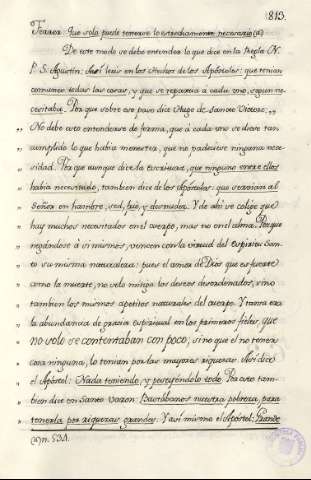 819.
Ferrer. Que solo puede tenerse lo estrechamente necesario (a)
De este modo se debe entender lo que dice en la Regla N.
P. S. Agustin: Assi leeis en los Hechos de los Apóstoles: que tenian
comunes todas las cosas, y que se repartia á cada uno, segun ne-
cesitaba. Porque sobre ese paso dice Hugo de Sancto Victore:
„ No debe esto entenderse de forma, que á cada uno se diese tan
„ cumplido lo que habia menester, que no padeciese ninguna nece-
„ sidad. Porque aunque dice la Escritura, que ninguno entre ellos
„ habia necesitado, tambien dice de los Apóstoles: que servian al
„ Señor en hambre, sed, frio, y desnudez. Y de ahi se colige que
„ hay muchos necesitados en el cuerpo, mas no en el alma. Porque
„ negandose á si mismos, vencen con la virtud del Espiritu San-
„ to su misma naturaleza: pues el amor de Dios que es fuerte
„ como la muerte, no solo mitiga los deseos desordenados, sino
„ tambien los mismos apetitos naturales del cuerpo. Y tanta era
„ la abundancia de gracia espiritual en los primeros fieles, que
„ no solo se contentaban con poco, sino que el no tener
„ cosa ninguna, lo tenian por las mayores riquezas. Assi dice
„ el Apóstol: Nada teniendo, y poseyéndolo todo. Por esto tam-
„ bien dice un Santo varon: Bastabanos nuestra pobreza, para
„ tenerla por riquezas grandes. Y asi mismo el Apóstol: Grande
(a) n. 534.